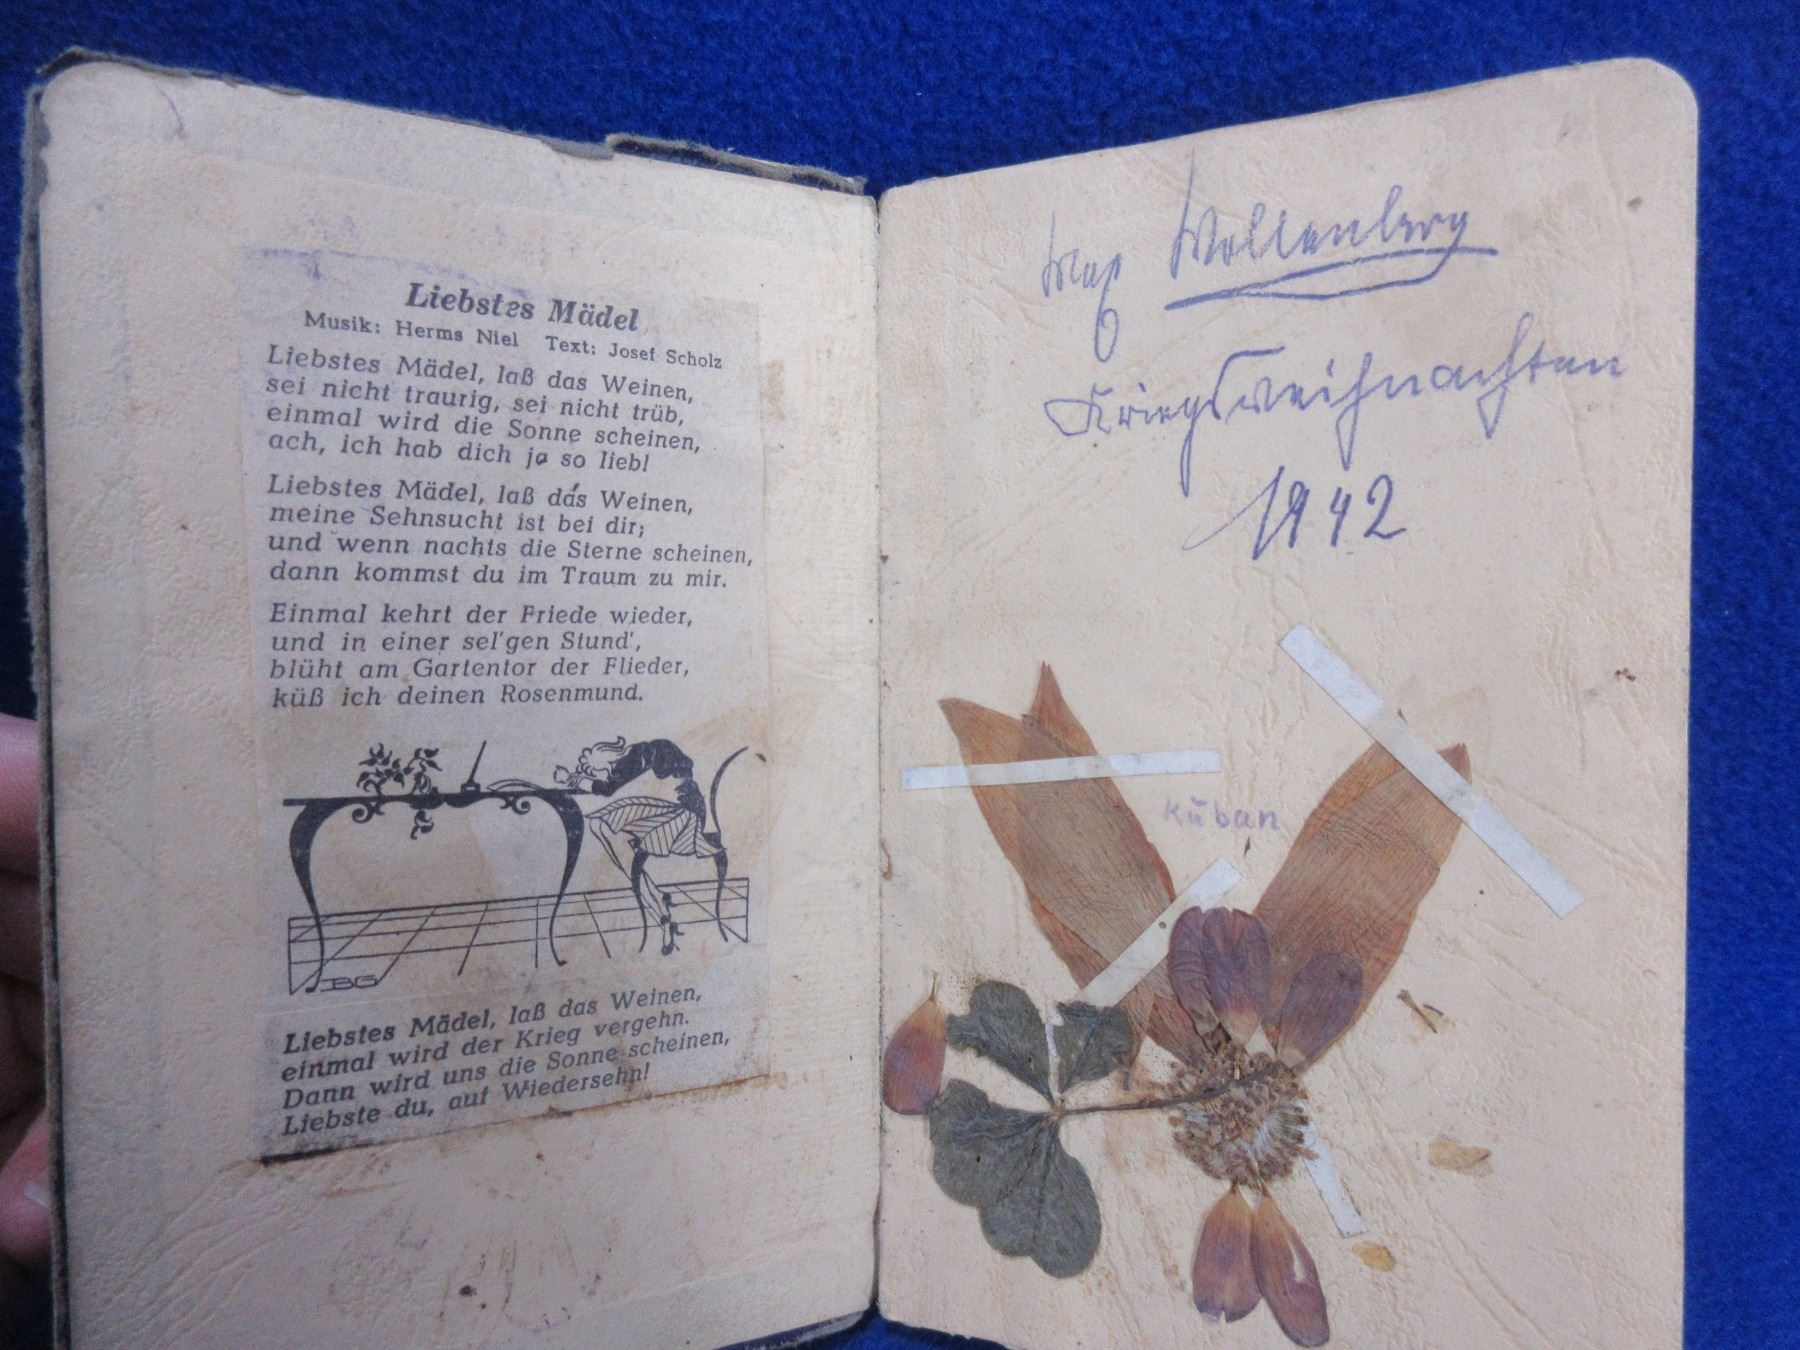 Liebstes Mädel
Musik: Herms Niel Text: Josef Scholz
Liebstes Mädel, laß das Weinen,
sei nicht traurig, sei nicht trüb,
einmal wird die Sonne scheinen,
ach, ich hab dich ja so lieb!
Liebstes Mädel, laß das Weinen,
meine Sehnsucht ist bei dir;
und wenn nachts die Sterne scheinen,
dann kommst du im Traum zu mir.
Einmal kehrt der Friede wieder,
und in einer sel'gen Stund',
blüht am Gartentor der Flieder,
küß ich deinen Rosenmund.
BG
Liebstes Mädel, laß das Weinen,
einmal wird der Krieg vergehn.
Dann wird uns die Sonne scheinen,
Liebste du, auf Wiedersehn!
Max Wollenberg
Kriegsweihnachten
1942
Kuban